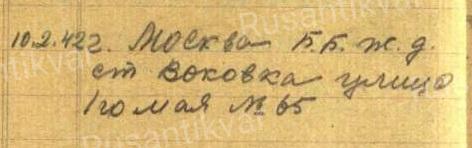 10.2.42г. Москва Б.Б.ж.д.
ст Воковка улица
1го мая № 65
Rusantikvar